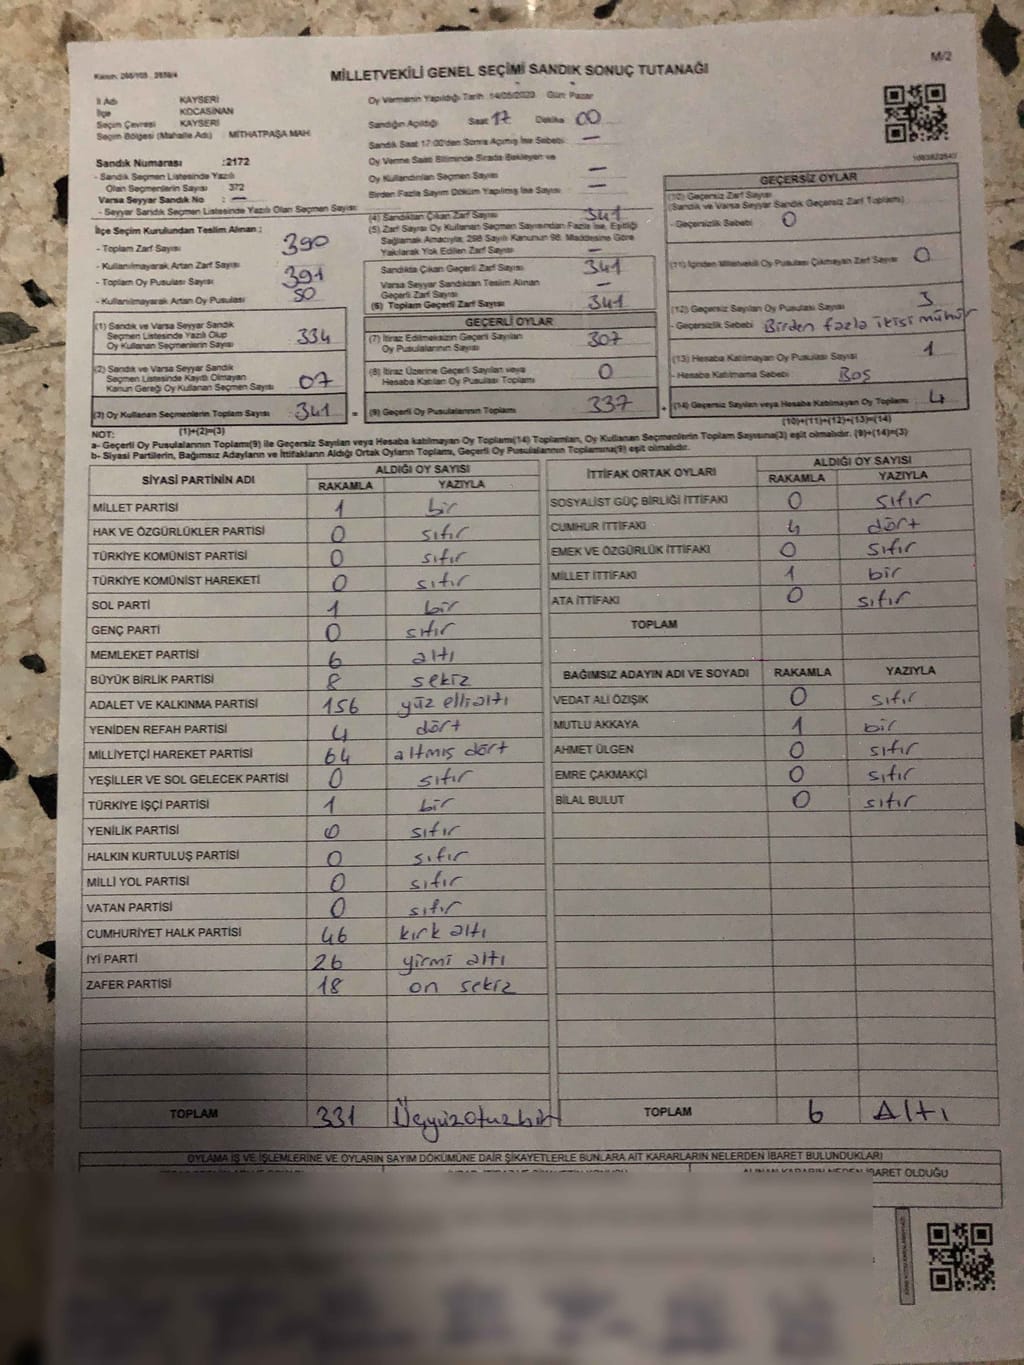 M/2
Kanun: 298/105 , 2839/4
MİLLETVEKİLİ GENEL SEÇİMİ SANDIK SONUÇ TUTANAĞI
İl Adı KAYSERİ
İlçe KOCASİNAN
Seçim Çevresi KAYSERİ
Seçim Bölgesi (Mahalle Adı) MİTHATPAŞA MAH.
Oy Vermenin Yapıldığı Tarih: 14/05/2023 Gün: Pazar
Sandığın Açıldığı Saat 17 Dakika 00
Sandık Saat 17:00'den Sonra Açılmış İse Sebebi: —
Oy Verme Saati Bitiminde Sırada Bekleyen ve
Oy Kullandırılan Seçmen Sayısı —
Birden Fazla Sayım Döküm Yapılmış İse Sayısı —
Sandık Numarası :2172
- Sandık Seçmen Listesinde Yazılı
Olan Seçmenlerin Sayısı 372
Varsa Seyyar Sandık No : —
- Seyyar Sandık Seçmen Listesinde Yazılı Olan Seçmen Sayısı:
İlçe Seçim Kurulundan Teslim Alınan ;
- Toplam Zarf Sayısı 390
- Kullanılmayarak Artan Zarf Sayısı
- Toplam Oy Pusulası Sayısı 391
- Kullanılmayarak Artan Oy Pusulası 50
(1) Sandık ve Varsa Seyyar Sandık
Seçmen Listesinde Yazılı Olup
Oy Kullanan Seçmenlerin Sayısı 334
(2) Sandık ve Varsa Seyyar Sandık
Seçmen Listesinde Kayıtlı Olmayan
Kanun Gereği Oy Kullanan Seçmen Sayısı 07
(3) Oy Kullanan Seçmenlerin Toplam Sayısı 341 =
(1)+(2)=(3)
(4) Sandıktan Çıkan Zarf Sayısı 341
(5) Zarf Sayısı Oy Kullanan Seçmen Sayısından Fazla İse, Eşitliği
Sağlamak Amacıyla, 298 Sayılı Kanunun 98. Maddesine Göre
Yakılarak Yok Edilen Zarf Sayısı —
Sandıkta Çıkan Geçerli Zarf Sayısı 341
Varsa Seyyar Sandıktan Teslim Alınan
Geçerli Zarf Sayısı —
(6) Toplam Geçerli Zarf Sayısı 341
GEÇERLİ OYLAR
(7) İtiraz Edilmeksizin Geçerli Sayılan
Oy Pusulalarının Sayısı 307
(8) İtiraz Üzerine Geçerli Sayılan veya
Hesaba Katılan Oy Pusulası Toplamı 0
(9) Geçerli Oy Pusulalarının Toplamı 337 +
GEÇERSİZ OYLAR
(10) Geçersiz Zarf Sayısı
(Sandık ve Varsa Seyyar Sandık Geçersiz Zarf Toplamı)
- Geçersizlik Sebebi 0
(11) İçinden Milletvekili Oy Pusulası Çıkmayan Zarf Sayısı 0
(12) Geçersiz Sayılan Oy Pusulası Sayısı 3
- Geçersizlik Sebebi Birden fazla ikisi mühür
(13) Hesaba Katılmayan Oy Pusulası Sayısı 1
- Hesaba Katılmama Sebebi Boş
(14) Geçersiz Sayılan veya Hesaba Katılmayan Oy Toplamı 4
(10)+(11)+(12)+(13)=(14)
NOT:
a- Geçerli Oy Pusulalarının Toplamı(9) ile Geçersiz Sayılan veya Hesaba katılmayan Oy Toplamı(14) Toplamları, Oy Kullanan Seçmenlerin Toplam Sayısına(3) eşit olmalıdır. (9)+(14)=(3)
b- Siyasi Partilerin, Bağımsız Adayların ve İttifakların Aldığı Ortak Oyların Toplamı, Geçerli Oy Pusulalarının Toplamına(9) eşit olmalıdır.
SİYASİ PARTİNİN ADI ALDIĞI OY SAYISI
RAKAMLA YAZIYLA
MİLLET PARTİSİ 1 bir
HAK VE ÖZGÜRLÜKLER PARTİSİ 0 sıfır
TÜRKİYE KOMÜNİST PARTİSİ 0 sıfır
TÜRKİYE KOMÜNİST HAREKETİ 0 sıfır
SOL PARTİ 1 bir
GENÇ PARTİ 0 sıfır
MEMLEKET PARTİSİ 6 altı
BÜYÜK BİRLİK PARTİSİ 8 sekiz
ADALET VE KALKINMA PARTİSİ 156 yüz ellialtı
YENİDEN REFAH PARTİSİ 4 dört
MİLLİYETÇİ HAREKET PARTİSİ 64 altmış dört
YEŞİLLER VE SOL GELECEK PARTİSİ 0 sıfır
TÜRKİYE İŞÇİ PARTİSİ 1 bir
YENİLİK PARTİSİ 0 sıfır
HALKIN KURTULUŞ PARTİSİ 0 sıfır
MİLLİ YOL PARTİSİ 0 sıfır
VATAN PARTİSİ 0 sıfır
CUMHURİYET HALK PARTİSİ 46 kırk altı
İYİ PARTİ 26 yirmi altı
ZAFER PARTİSİ 18 on sekiz
TOPLAM 331 Üçyüzotuzbir
İTTİFAK ORTAK OYLARI ALDIĞI OY SAYISI
RAKAMLA YAZIYLA
SOSYALİST GÜÇ BİRLİĞİ İTTİFAKI 0 sıfır
CUMHUR İTTİFAKI 4 dört
EMEK VE ÖZGÜRLÜK İTTİFAKI 0 sıfır
MİLLET İTTİFAKI 1 bir
ATA İTTİFAKI 0 sıfır
TOPLAM
BAĞIMSIZ ADAYIN ADI VE SOYADI RAKAMLA YAZIYLA
VEDAT ALİ ÖZIŞIK 0 sıfır
MUTLU AKKAYA 1 bir
AHMET ÜLGEN 0 sıfır
EMRE ÇAKMAKÇİ 0 sıfır
BİLAL BULUT 0 sıfır
TOPLAM 6 Altı
OYLAMA İŞ VE İŞLEMLERİNE VE OYLARIN SAYIM DÖKÜMÜNE DAİR ŞİKAYETLERLE BUNLARA AİT KARARLARIN NELERDEN İBARET BULUNDUKLARI
ALINAN KARARIN NEDEN İBARET OLDUĞU